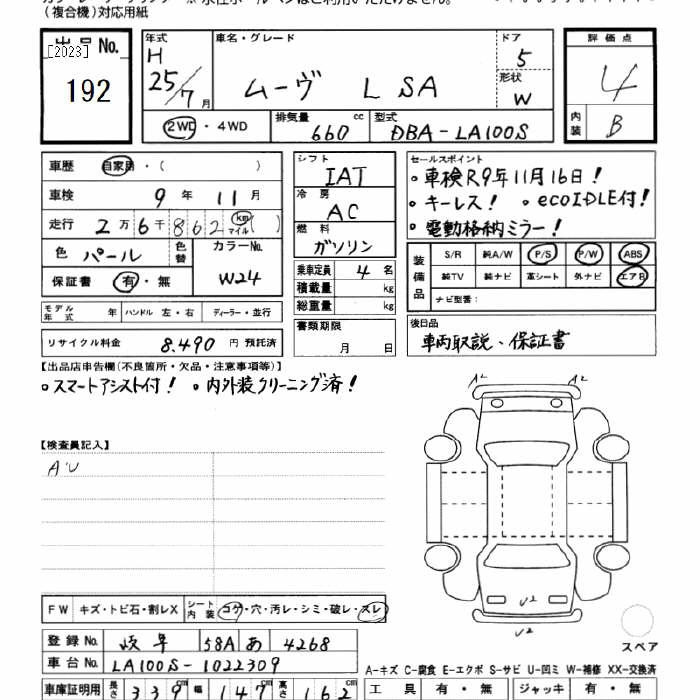 (複合機)対応用紙
出品No.
[2023]
192
年式
H
25/7月
車名・グレード
ムーヴ L SA
ドア
5
形状
W
2WD・4WD
排気量 660 cc
型式 DBA-LA100S
評価点
4
内装 B
車歴 自家用・( )
車検 9年 11月
走行 2万6千862 km マイル ( )
色 パール
色替
カラーNo. W24
保証書 有・無
シフト
IAT
冷房
AC
燃料
ガソリン
乗車定員 4 名
積載量 kg
総重量 kg
セールスポイント
・車検R9年11月16日!
・キーレス! ・ecoIDLE付!
・電動格納ミラー!
装備品
S/R 純A/W P/S P/W ABS
純TV 純ナビ 革シート 外ナビ エアB
ナビ型番:
モデル年式 年 ハンドル 左・右 ディーラー・並行
リサイクル料金 8,490 円 預託済
書類期限
月 日
後日品
車両取説、保証書
【出品店申告欄(不良箇所・欠品・注意事項等)】
・スマートアシスト付! ・内外装クリーニング済!
【検査員記入】
A・U
A2 A2
U2
U2
スペア
FW キズ・トビ石・割レX シート内装 コゲ・穴・汚レ・シミ・破レ・スレ
登録No. 岐阜 58A あ 4268
車台No. LA100S-1022309
車庫証明用 長さ 339cm 幅 147cm 高さ 162cm
A-キズ C-腐食 E-エクボ S-サビ U-凹ミ W-補修 XX-交換済
工具 有・無 ジャッキ 有・無